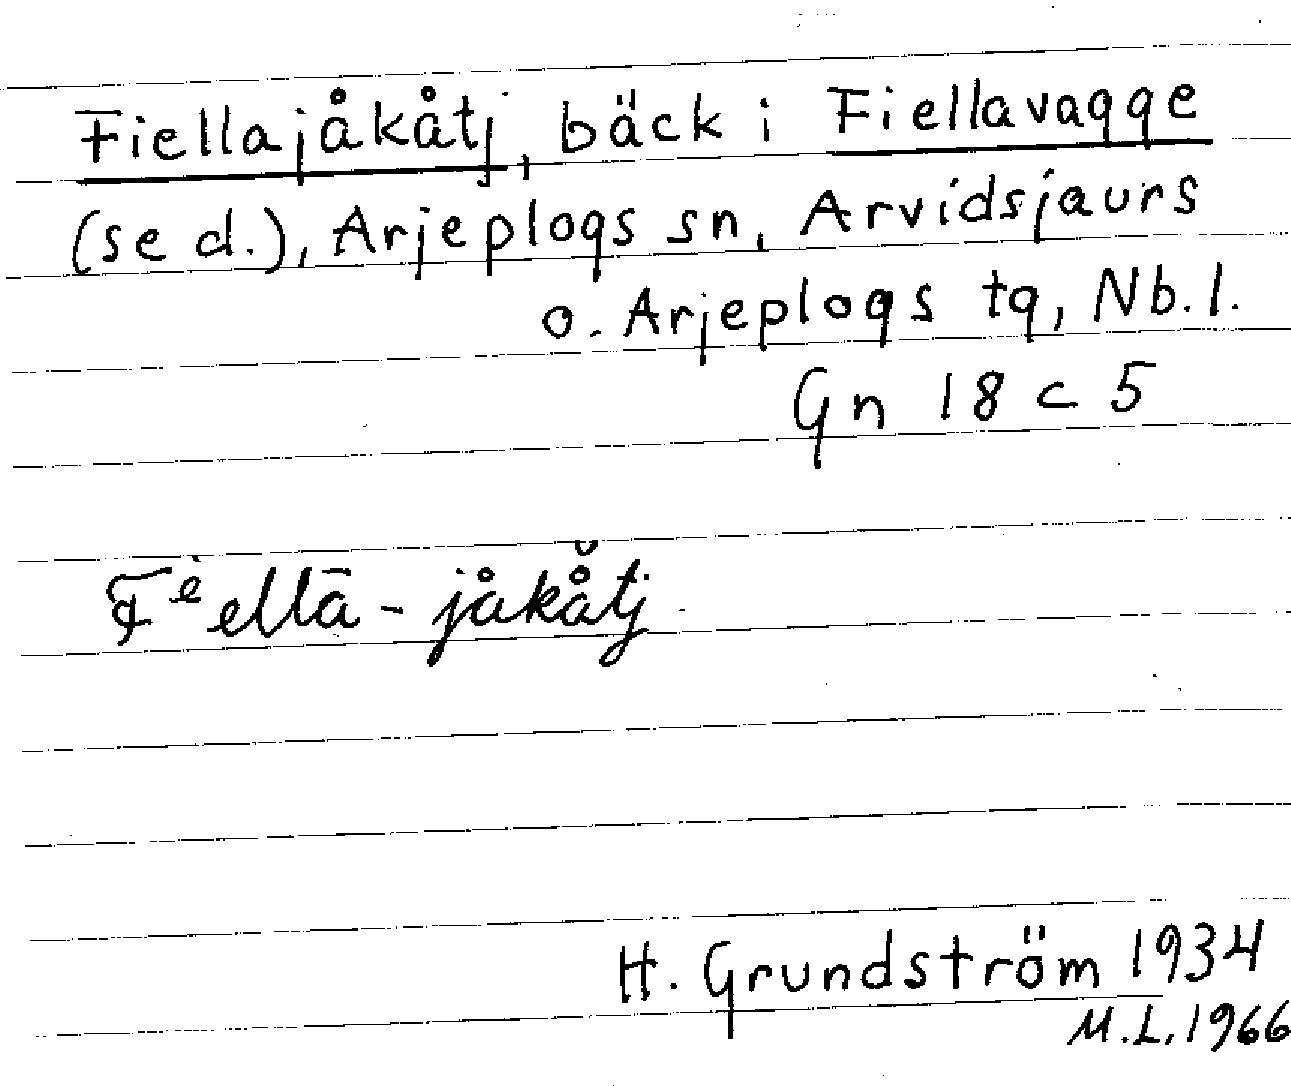 Fiellajåkåtj, bäck i Fiellavagge
(se d.), Arjeplogs sn, Arvidsjaurs
o. Arjeplogs tg, Nb.l.
Gn 18 c 5
Fᵉ̀ellā-jåkå̆tj
H. Grundström 1934
M.L. 1966